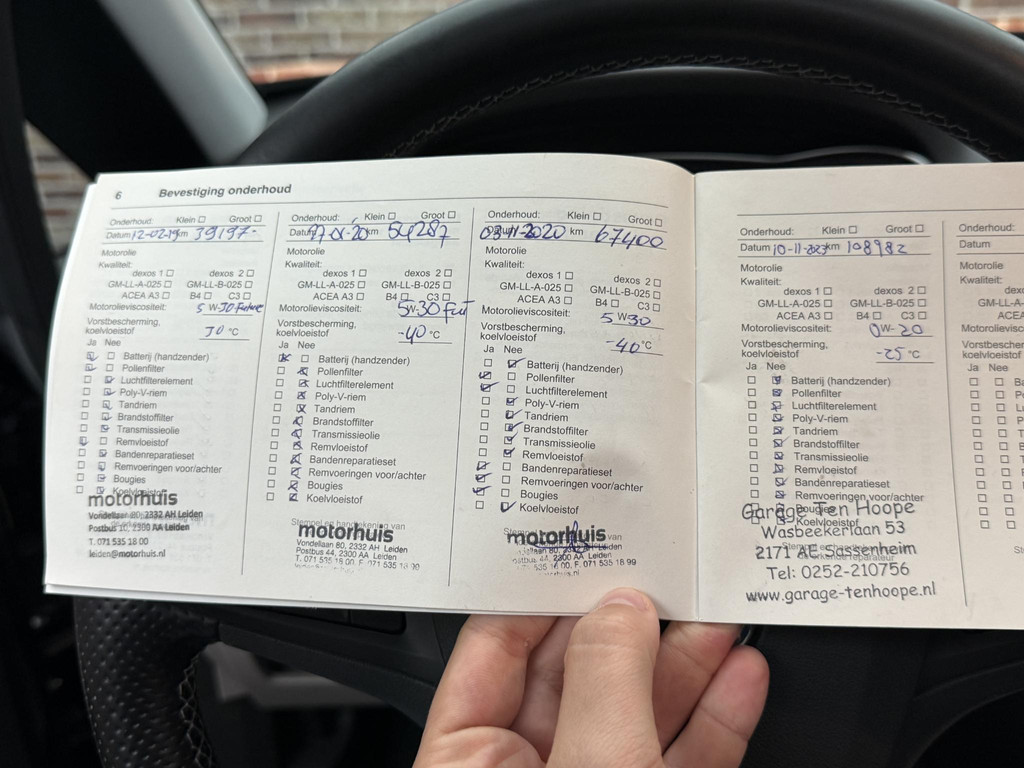 6 Bevestiging onderhoud
Onderhoud: Klein Groot
Datum 12-02-19 km 39197-
Motorolie
Kwaliteit:
dexos 1 dexos 2
GM-LL-A-025 GM-LL-B-025
ACEA A3 B4 C3
Motorolieviscositeit: 5W-30
Vorstbescherming,
koelvloeistof °C
Ja Nee
Batterij (handzender)
Pollenfilter
Luchtfilterelement
Poly-V-riem
Tandriem
Brandstoffilter
Transmissieolie
Remvloeistof
Bandenreparatieset
Remvoeringen voor/achter
Bougies
Koelvloeistof
motorhuis
Vondellaan 80, 2332 AH Leiden
Postbus 10, 2300 AA Leiden
T. 071 535 18 00
leiden@motorhuis.nl
Onderhoud: Klein Groot
Datum 20 km 54287
Motorolie
Kwaliteit:
dexos 1 dexos 2
GM-LL-A-025 GM-LL-B-025
ACEA A3 B4 C3
Motorolieviscositeit: 5W-30
Vorstbescherming,
koelvloeistof -40 °C
Ja Nee
Batterij (handzender)
Pollenfilter
Luchtfilterelement
Poly-V-riem
Tandriem
Brandstoffilter
Transmissieolie
Remvloeistof
Bandenreparatieset
Remvoeringen voor/achter
Bougies
Koelvloeistof
Stempel en handtekening van
motorhuis
Vondellaan 80, 2332 AH Leiden
Postbus 44, 2300 AA Leiden
T. 071 535 18 00. F. 071 535 18 99
Onderhoud: Klein Groot
Datum 03-11-2020 km 67400
Motorolie
Kwaliteit:
dexos 1 dexos 2
GM-LL-A-025 GM-LL-B-025
ACEA A3 B4 C3
Motorolieviscositeit: 5W30
Vorstbescherming,
koelvloeistof -40 °C
Ja Nee
Batterij (handzender)
Pollenfilter
Luchtfilterelement
Poly-V-riem
Tandriem
Brandstoffilter
Transmissieolie
Remvloeistof
Bandenreparatieset
Remvoeringen voor/achter
Bougies
Koelvloeistof
van
motorhuis
80, 2332 AH Leiden
44, 2300 AA Leiden
535 18 00. F. 071 535 18 99
Onderhoud: Klein Groot
Datum 10-11-2023 km 108982
Motorolie
Kwaliteit:
dexos 1 dexos 2
GM-LL-A-025 GM-LL-B-025
ACEA A3 B4 C3
Motorolieviscositeit: 0W-20
Vorstbescherming,
koelvloeistof -25 °C
Ja Nee
Batterij (handzender)
Pollenfilter
Luchtfilterelement
Poly-V-riem
Tandriem
Brandstoffilter
Transmissieolie
Remvloeistof
Bandenreparatieset
Remvoeringen voor/achter
Bougies
Koelvloeistof
Garage Ten Hoope
Wasbeekerlaan 53
2171 AE Sassenheim
Tel: 0252-210756
www.garage-tenhoope.nl
Onderhoud:
Datum
Motorolie
Kwaliteit:
GM-LL-A
ACEA
Motorolievisc
Vorstbescherm
koelvloeistof
Ja Nee